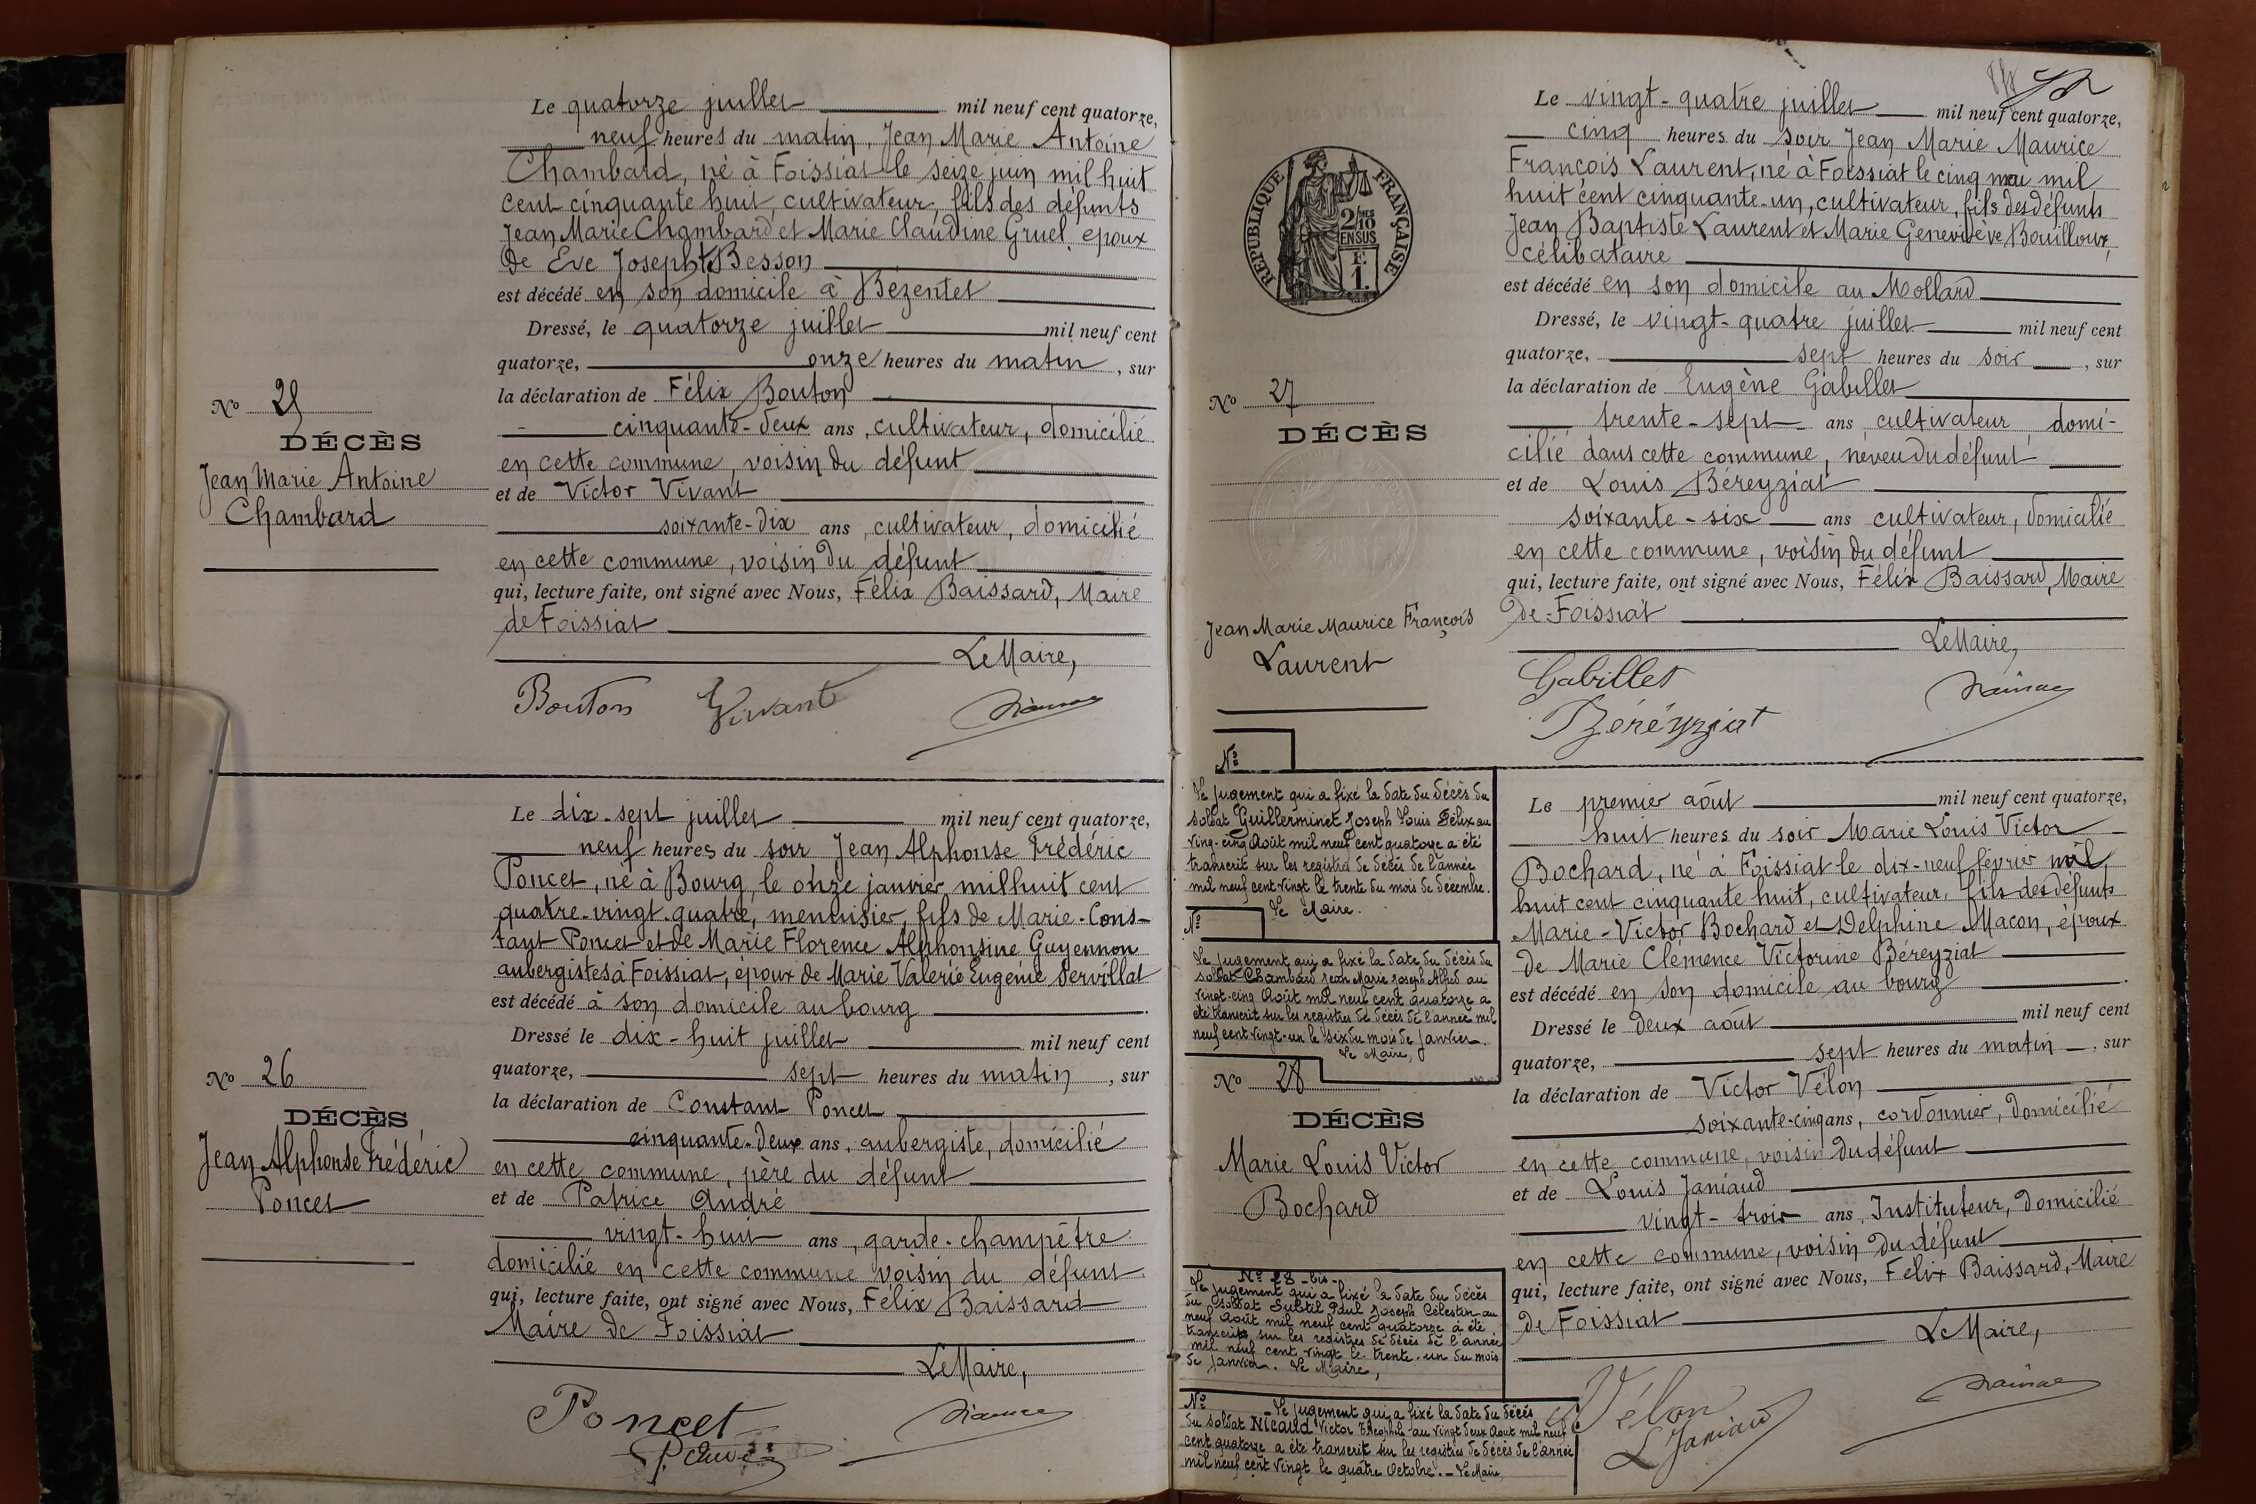 Le quatorze juillet mil neuf cent quatorze,
neuf heures du matin, Jean Marie Antoine
Chambard, né à Foissiat le seize juin mil huit
cent cinquante huit, cultivateur, fils des défunts
Jean Marie Chambard et Marie Claudine Gruel, époux
de Eve Josephte Besson
est décédé en son domicile à Bézentet
Dressé, le quatorze juillet mil neuf cent
quatorze, onze heures du matin, sur
No 25
la déclaration de Félix Bouton
DÉCÈS
cinquante-deux ans, cultivateur, domicilié
Jean Marie Antoine
Chambard
en cette commune, voisin du défunt
et de Victor Vivant
soixante-dix ans, cultivateur, domicilié
en cette commune, voisin du défunt
qui, lecture faite, ont signé avec Nous, Félix Baissard, Maire
de Foissiat
Le Maire,
Bouton Vivant
Le dix-sept juillet mil neuf cent quatorze,
neuf heures du soir Jean Alphonse Frédéric
Poncet, né à Bourg, le onze janvier mil huit cent
quatre-vingt-quatre, menuisier fils de Marie-Cons-
tant Poncet et de Marie Florence Alphonsine Guyennon
aubergistes à Foissiat, époux de Marie Valérie Eugénie Servillat
est décédé à son domicile au bourg
Dressé le dix-huit juillet mil neuf cent
quatorze, sept heures du matin, sur
No 26
DÉCÈS
Jean Alphonse Frédéric
Poncet
la déclaration de Constant Poncet
cinquante-deux ans, aubergiste, domicilié
en cette commune, père du défunt
et de Patrice André
vingt-huit ans, garde-champêtre
domicilié en cette commune voisin du défunt
qui, lecture faite, ont signé avec Nous, Félix Baissard
Maire de Foissiat
Le Maire,
Poncet
RÉPUBLIQUE FRANÇAISE
2/10
EN SUS
F.
1.
Le vingt-quatre juillet mil neuf cent quatorze,
cinq heures du soir Jean Marie Maurice
François Laurent, né à Foissiat le cinq mai mil
huit cent cinquante-un, cultivateur, fils des défunts
Jean Baptiste Laurent et Marie Geneviève Bouilloux,
célibataire
est décédé en son domicile au Mollard
Dressé, le vingt-quatre juillet mil neuf cent
quatorze, sept heures du soir, sur
No 27
DÉCÈS
Jean Marie Maurice François
Laurent
la déclaration de Eugène Gabillet
trente-sept ans cultivateur domi-
cilié dans cette commune, neveu du défunt
et de Louis Béreyziat
soixante-six ans cultivateur, domicilié
en cette commune, voisin du défunt
qui, lecture faite, ont signé avec Nous, Félix Baissard, Maire
de Foissiat
Le Maire,
Gabillet
Béréyziat
No
Le jugement qui a fixé la date du décès du
soldat Guillerminet Joseph Louis Félix au
vingt-cinq Août mil neuf cent quatorze a été
transcrit sur les registres de décès de l'année
mil neuf cent vingt le trente du mois de décembre.
Le Maire.
No
Le jugement qui a fixé la date du décès du
soldat Chambard Jean Marie Joseph Alfred au
vingt-cinq Août mil neuf cent quatorze a
été transcrit sur les registres de décès de l'année mil
neuf cent vingt-un le six du mois de Janvier.
Le Maire,
Le premier août mil neuf cent quatorze,
huit heures du soir Marie Louis Victor
Bochard, né à Foissiat le dix-neuf février mil
huit cent cinquante huit, cultivateur, fils des défunts
Marie-Victor Bochard et Delphine Macon, époux
de Marie Clémence Victorine Béreyziat
est décédé en son domicile au bourg
Dressé le deux août mil neuf cent
quatorze, sept heures du matin, sur
No 28
DÉCÈS
Marie Louis Victor
Bochard
la déclaration de Victor Vélon
soixante-cinq ans, cordonnier, domicilié
en cette commune, voisin du défunt
et de Louis Janiaud
vingt-trois ans, Instituteur, domicilié
en cette commune, voisin du défunt
qui, lecture faite, ont signé avec Nous, Félix Baissard, Maire
de Foissiat
Le Maire,
Vélon
L Janiaud
No 28 bis
Le jugement qui a fixé la date du décès
du soldat Subtil Paul Joseph Célestin au
neuf Août mil neuf cent quatorze a été
transcrit sur les registres de décès de l'année
mil neuf cent vingt le trente-un du mois
de Janvier. Le Maire,
No
Le jugement qui a fixé la date du décès
du soldat Nicaud Victor Théophile au vingt deux Août mil neuf
cent quatorze a été transcrit sur les registres de décès de l'année
mil neuf cent vingt le quatre Octobre. - Le Maire,